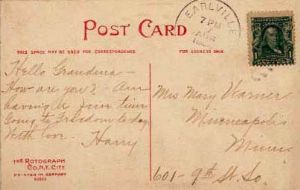 Post Card
THIS SPACE MAY BE USED FOR CORRESPONDENCE
FOR ADDRESS ONLY
EARLVILLE
7 PM
Hello Grandma -
How are you? - Am
having a fine time
Going to Freedom today
With love - Harry
Mrs Mary Warner
Minneapolis
Minn
601 - 9th St. So.
THE ROTOGRAPH
CO., N.Y. CITY
PRINTED IN GERMANY